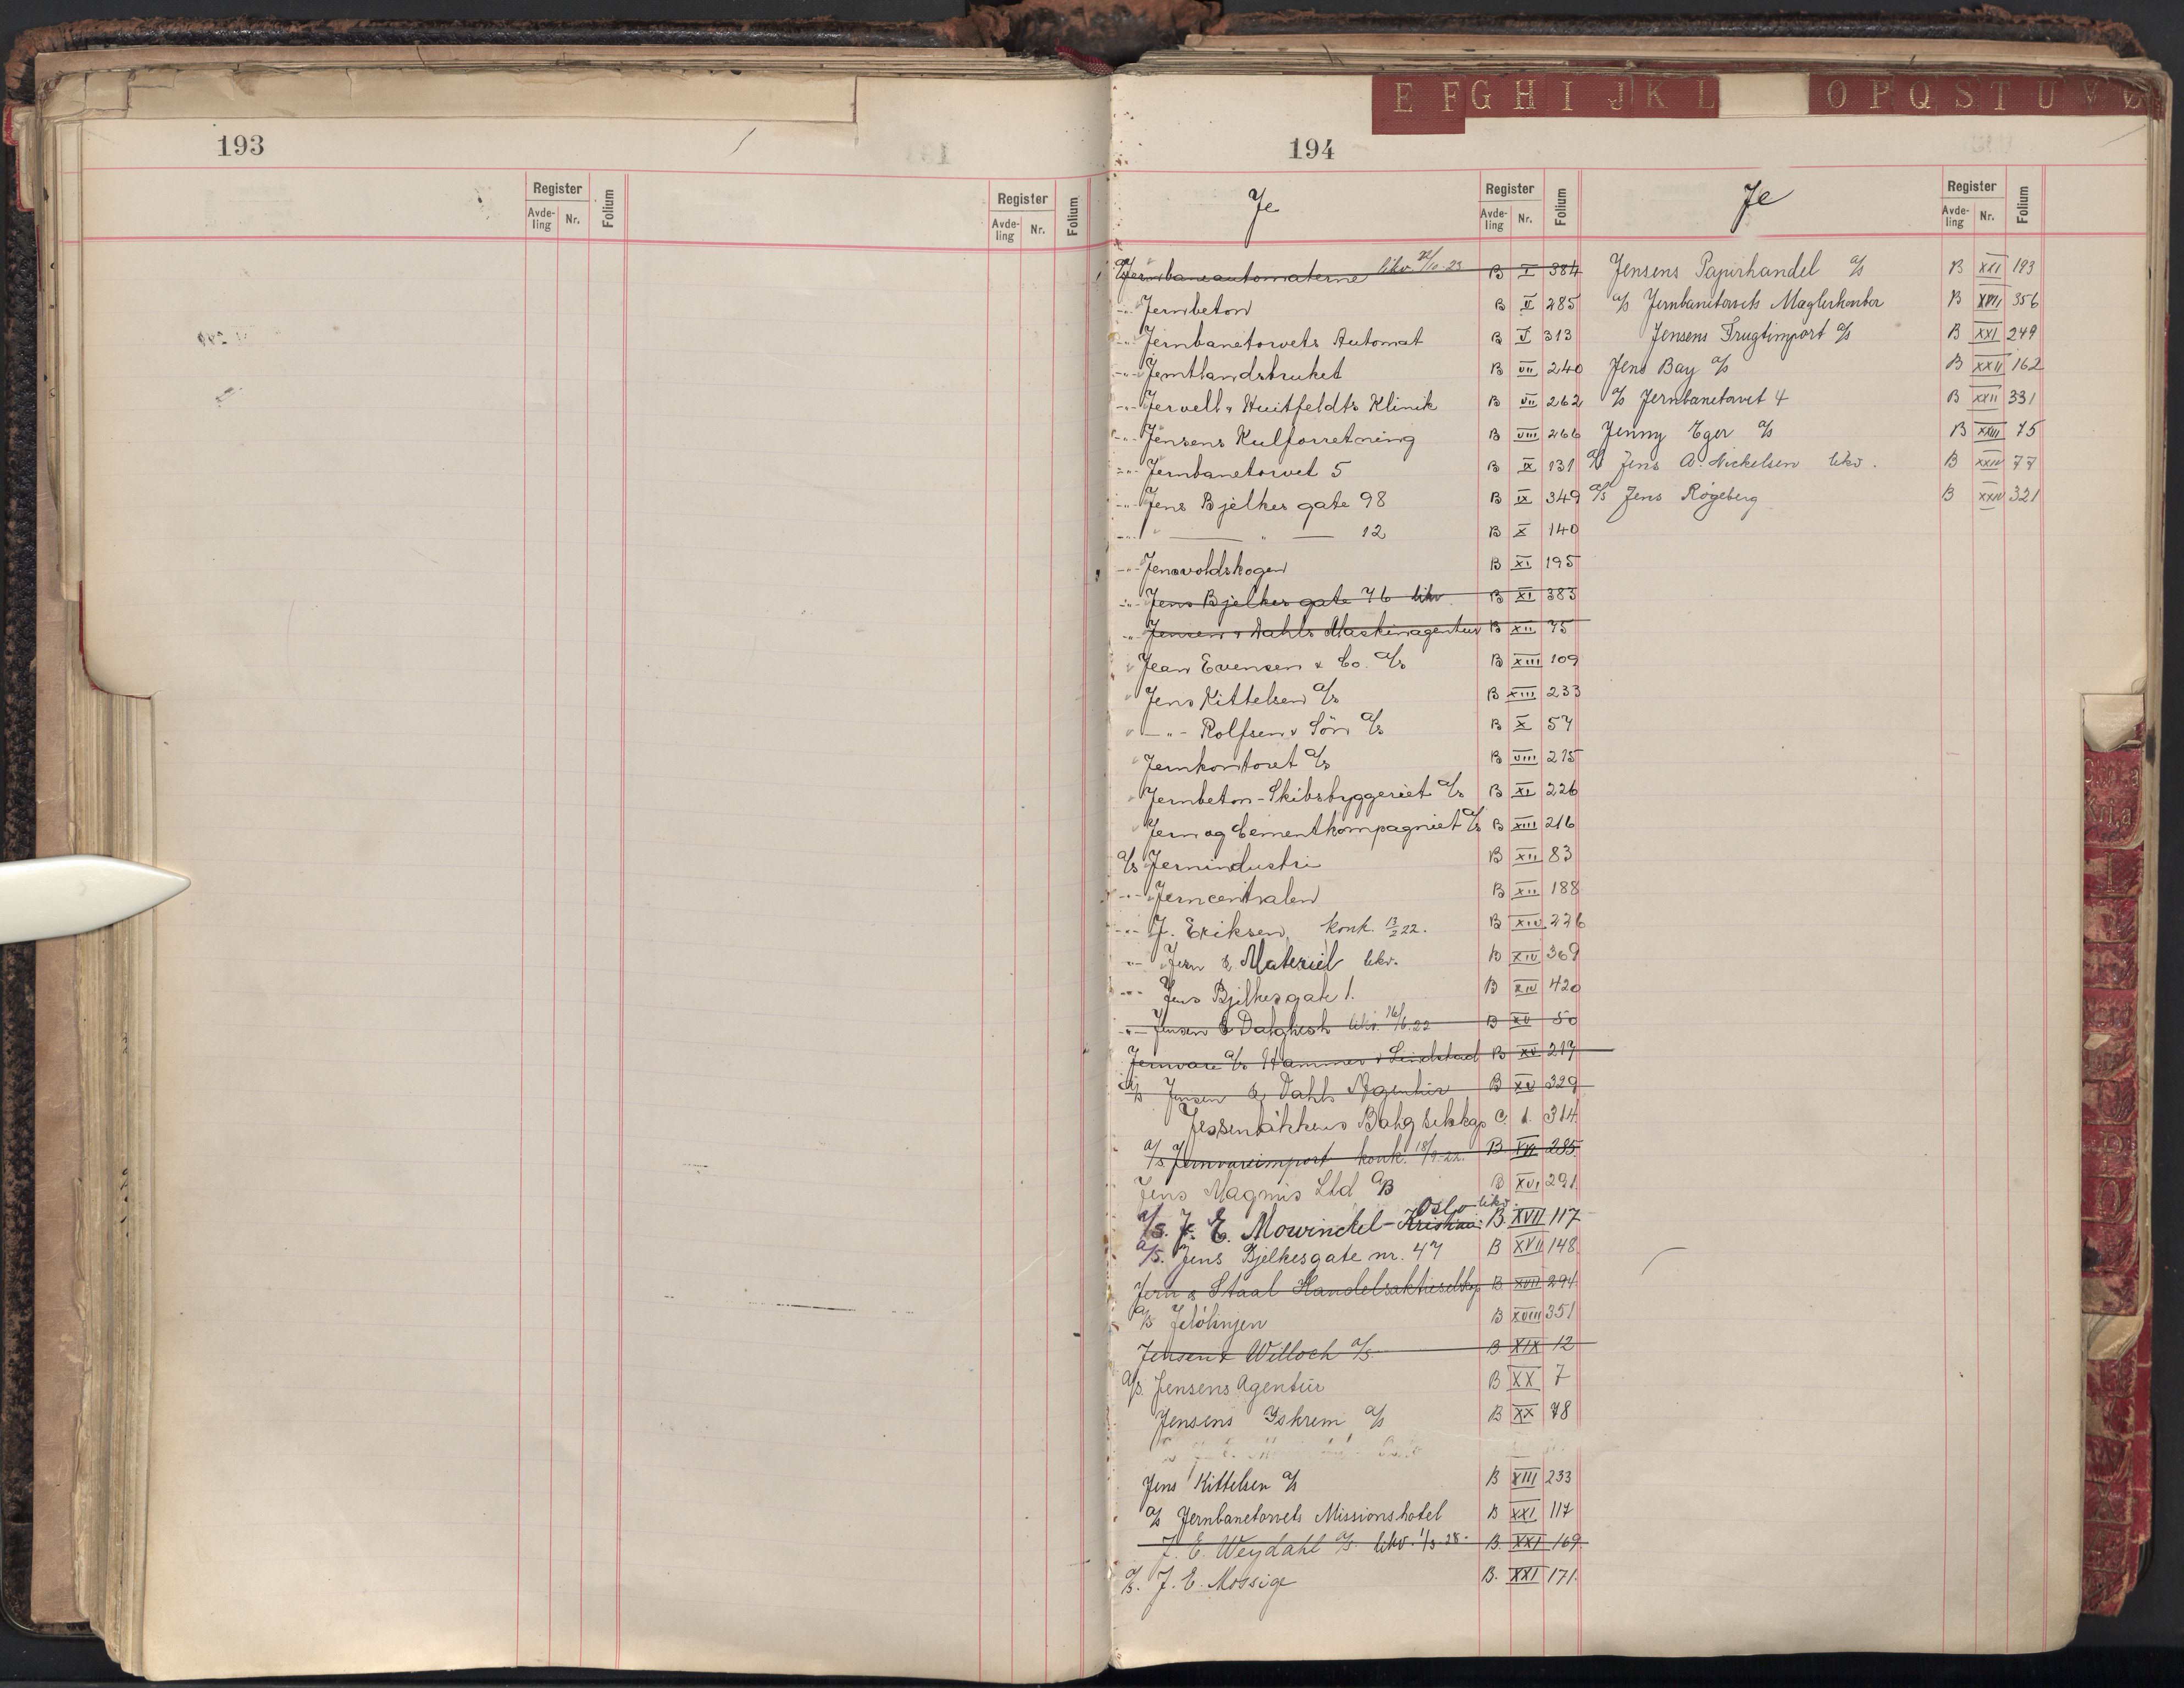 E F G H I J K L O P Q S T U V Ø
193
Register Folium Register Folium
Avde-ling Nr. Avde-ling Nr.
194
Je Register Folium Je Register Folium
Avde-ling Nr. Avde-ling Nr.
A/s Jernbaneautomaterne likv. 22/10-23 B I 384
-"- Jernbeton B V 285
-"- Jernbanetorvets Automat B I 313
-"- Jemtlandsbruket B VII 240
-"- Jervell & Huitfeldts Klinik B VII 262
-"- Jensens Kulforretning B VIII 266
-"- Jernbanetorvet 5 B IX 131
-"- Jens Bjelkes gate 98 B IX 349
-"- — " — 12 B X 140
-"- Jensvoldskogen B XI 195
-"- Jens Bjelkes gate 76 likv. B XI 383
-"- Jensen & Dahls Maskinagentur B XII 75
Jean Evensen & Co. A/s B XIII 109
Jens Kittelsen A/s B XIII 233
-"- Rolfsen & Sön A/s B X 57
Jernkontoret A/s B VIII 215
Jernbeton-Skibsbyggeriet A/s B XI 226
Jern og Cementkompagniet A/s B XIII 216
A/s Jernindustri B XII 83
-"- Jerncentralen B XII 188
-"- J. Eriksen, konk. 13/2 22. B XIV 226
-"- Jern & Materiel likv. B XIV 369
-"- Jens Bjelkesgate 1. B XIV 420
-"- Jensen & Dahlgvist likv. 16/6.22 B XV 50
Jernvare A/s Hammer & Lindstad B XV 217
A/s Jensen & Dahls Agentur B XV 329
Jessenløkkens Bolig selskap C. 1. 314
A/s. Jernvareimport konk. 18/9-22. B. XVI 285
Jens Magnus Ltd A/B B XVI 291
Oslo likv.
A/s. J. E. Mowinckel - Kristiania B. XVII 117
A/s. Jens Bjelkesgate nr. 47 B XVII 148
Jern & Staal Handelsaktieselskap B XVII 294
A/s Jeløhnjen B XVIII 351
Jensen & Willoch A/s. B XIX 12
A/s. Jensens Agentur B XX 7
Jensens Iskrem A/s B XX 78
Jens Kittelsen A/s B XIII 233
A/s Jernbanetorvets Missionshotel B XXI 117
J. E. Weydahl A/s. likv. 1/3-28. B. XXI 169.
A/s. J. E. Mossige B. XXI 171.
Jensens Papirhandel A/s B XXI 193
A/s Jernbanetorvets Maglerkontor B XVII 356
Jensens Frugtimport A/s B XXI 249
Jens Bay A/s B XXII 162
A/s Jernbanetorvet 4 B XXII 331
Jenny Eger A/s B XXIII 75
A/s Jens A. Nickelsen likv. B XXIV 77
A/s Jens Røgeberg B XXIV 321